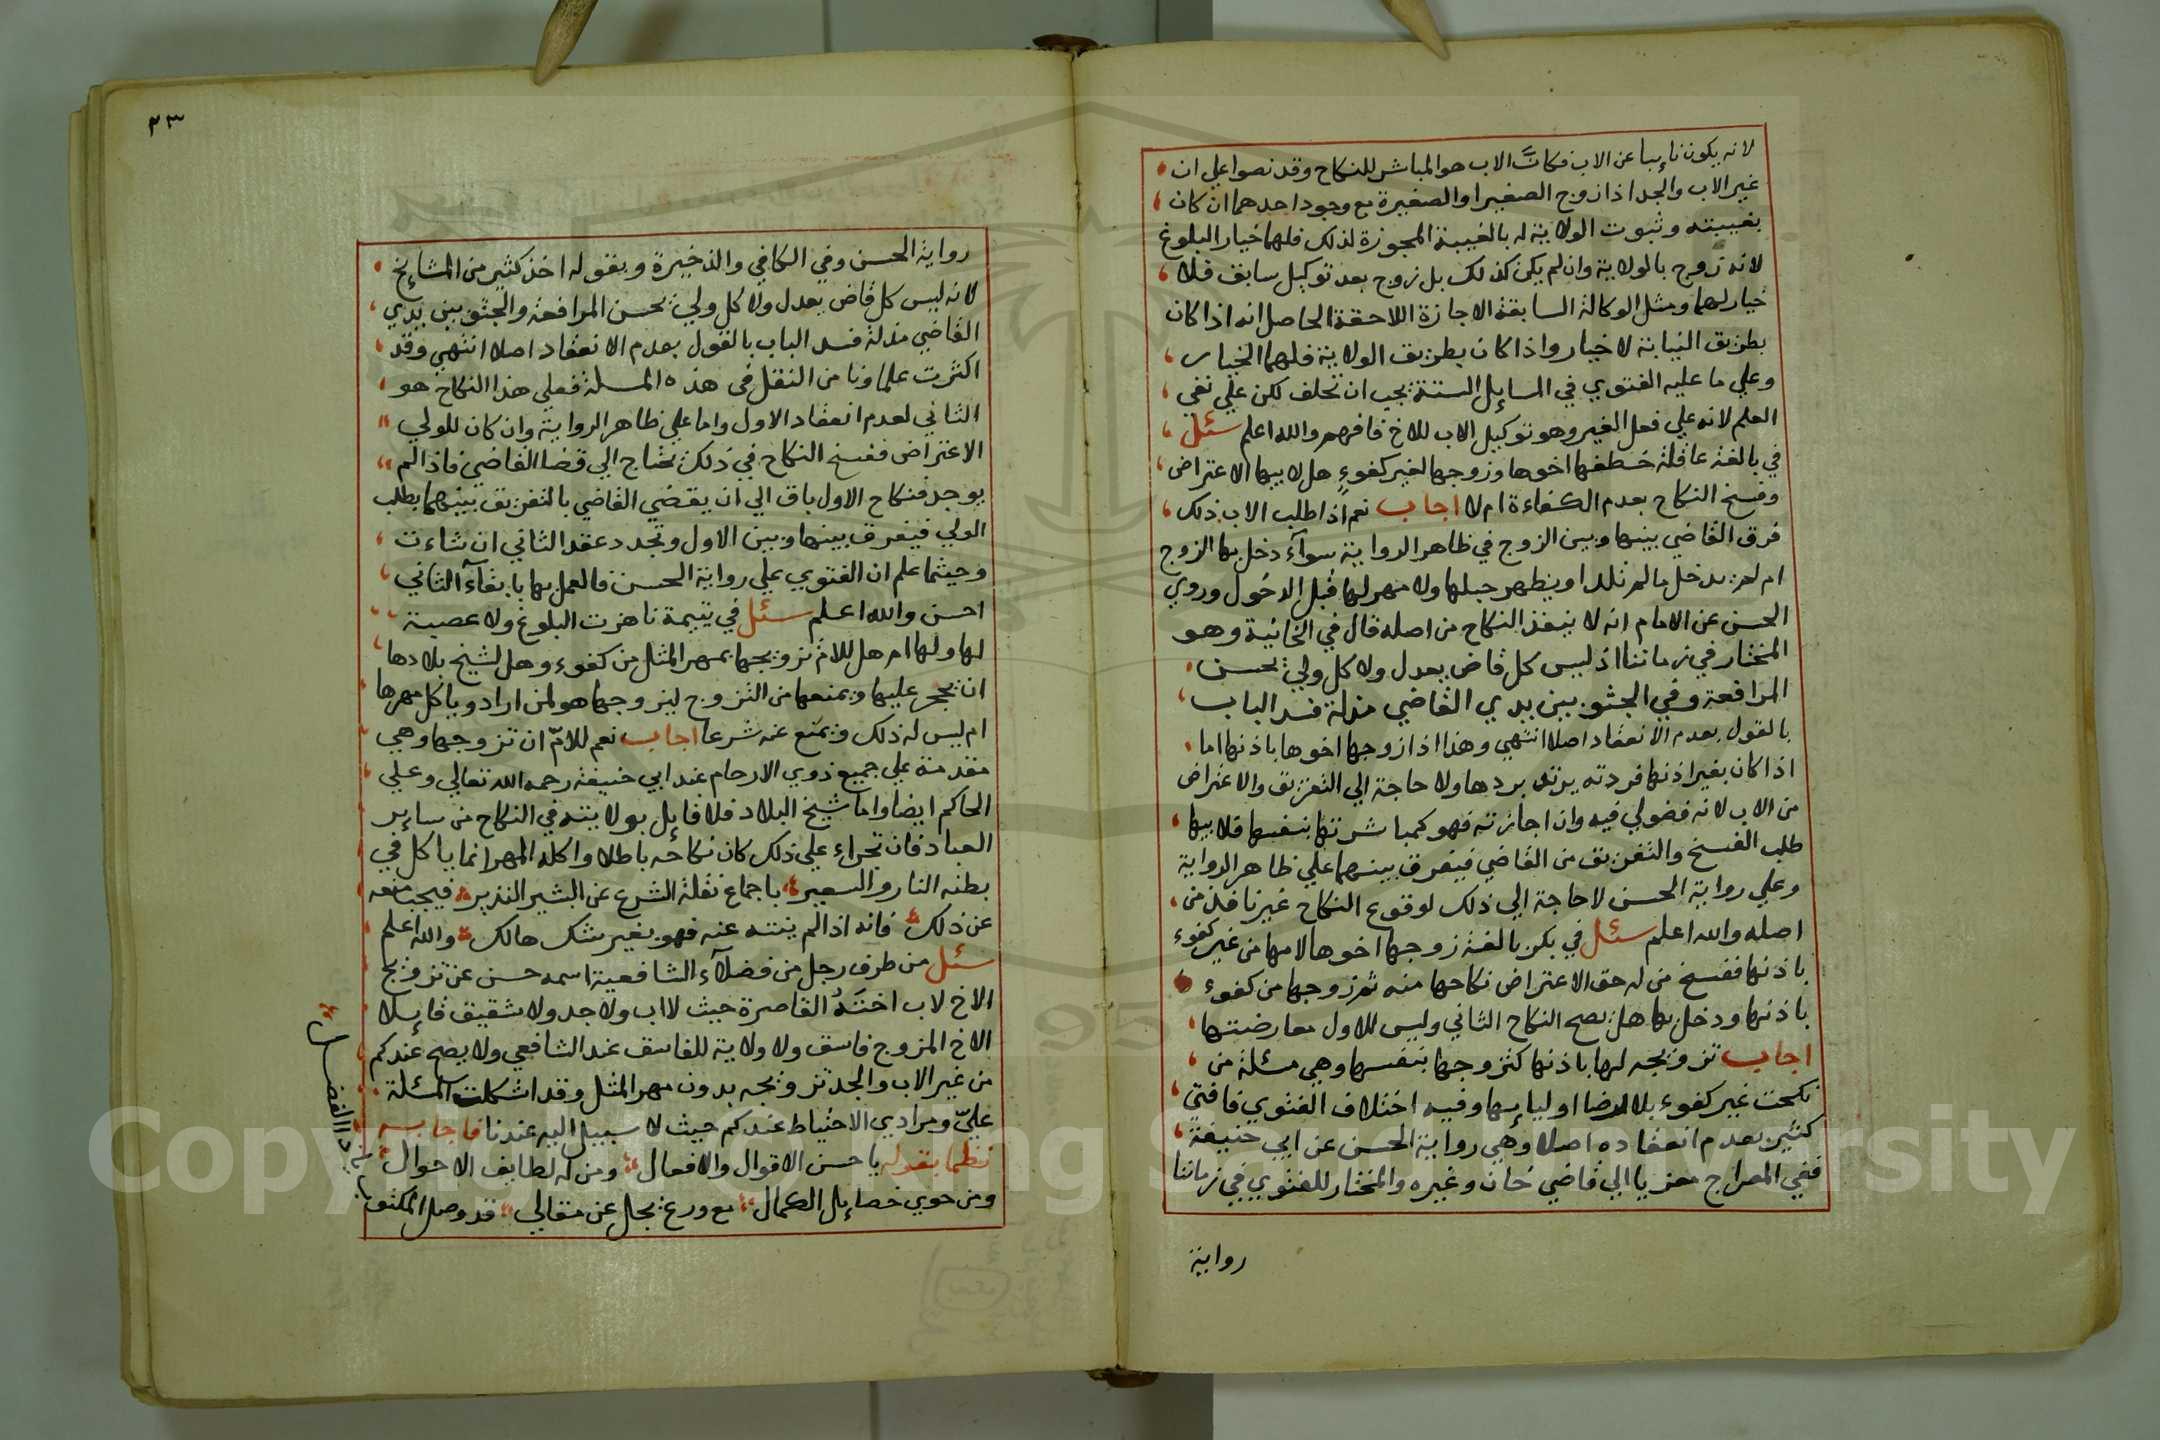 لانه يكون نايبا عن الاب فكان الاب هو المباشر للنكاح وقد نصوا علي ان
غير الاب والجد اذا زوج الصغير او الصغيرة مع وجود احدهما ان كان
بغيبته وثبوت الولاية له بالغيبة المجوزة لذلك فلهما خيار البلوغ
لانه زوج بالولاية وان لم يكن كذلك بل زوج بعد توكيل سابق فلا
خيار لهما ومثل الوكالة السابقة الاجازة اللاحقة الحاصل انه اذا كان
بطريق النيابة لا خيار واذا كان بطريق الولاية فلهما الخيار
وعلي ما عليه الفتوي في المسايل الستة يجب ان تحلف لكن علي نفي
العلم لانه علي فعل الغير وهو توكيل الاب للاخ فافهم والله اعلم سئل
في بالغة عاقلة خطفها اخوها وزوجها لغير كفوء هل لابيها الاعتراض
وفسخ النكاح بعدم الكفاءة ام لا اجاب نعم اذا طلب الاب ذلك
فرق القاضي بينها وبين الزوج في ظاهر الرواية سوآء دخل بها الزوج
ام لم يدخل ما لم تلد او يظهر حبلها ولا مهر لها قبل الدخول وروي
الحسن عن الامام انه لا ينفذ النكاح من اصله قال في الخانية وهو
المختار في زماننا اذ ليس كل قاض يعدل ولا كل ولي يحسن
المرافعة وفي الجثو بين يدي القاضي مذلة فسد الباب
بالقول بعدم الانعقاد اصلا انتهي وهذا اذا زوجها اخوها باذنها اما
اذا كان بغير اذنها فردته يرتد بردها ولا حاجة الي التفريق والاعتراض
من الاب لانه فضولي فيه وان اجازته فهو كمباشرتها بنفسها فلابيها
طلب الفسخ والتفريق من القاضي فيفرق بينهما علي ظاهر الرواية
وعلي رواية الحسن لا حاجة الي ذلك لوقوع النكاح غير نافذ من
اصله والله اعلم سئل في بكر بالغة زوجها اخوها لامها من غير كفوء
باذنها ففسخ من له حق الاعتراض نكاحها منه ثم زوجها من كفوء
باذنها ودخل بها هل يصح النكاح الثاني وليس للاول معارضتها
اجاب تزويجه لها باذنها كتزوجها بنفسها وهي مسئلة من
نكحت غير كفوء بلا رضا اوليايها وفيه اختلاف الفتوي فافتي
كثير بعدم انعقاده اصلا وهي رواية الحسن عن ابي حنيفة
ففي المعراج معزيا الي قاضي خان وغيره والمختار للفتوي في زماننا
رواية
٢٣
رواية الحسن وفي الكافي والذخيرة وبقوله اخذ كثير من المشايخ
لانه ليس كل قاض يعدل ولا كل ولي يحسن المرافعة والجثو بين يدي
القاضي مذلة فسد الباب بالقول بعدم الانعقاد اصلا انتهي وقد
اكثرت علماونا من النقل في هذه المسلة فعلي هذا النكاح هو
الثاني لعدم انعقاد الاول واما علي ظاهر الرواية وان كان للولي
الاعتراض ففسخ النكاح في ذلك يحتاج الي قضا القاضي فاذا لم
يوجد فنكاح الاول باق الي ان يقضي القاضي بالتفريق بينهما بطلب
الولي فيفرق بينها وبين الاول وتجدد عقد الثاني ان شاءت
وحيثما علم ان الفتوي علي رواية الحسن فالعمل بها بابقآء الثاني
احسن والله اعلم سئل في يتيمة ناهزت البلوغ ولا عصبة
لها ولها ام هل للام تزويجها بمهر المثل من كفوء وهل لشيخ بلادها
ان يحجر عليها ويمنعها من التزوج ليزوجها هو لمن اراد وياكل مهرها
ام ليس له ذلك ويمنع عنه شرعا اجاب نعم للام ان تزوجها وهي
مقدمة علي جميع ذوي الارحام عند ابي حنيفة رحمه الله تعالي وعلي
الحاكم ايضا واما شيخ البلاد فلا قايل بولايته في النكاح من ساير
العباد فان تجراء علي ذلك كان نكاحه باطلا واكله المهر انما ياكل في
بطنه النار والسعير باجماع نقلة الشرع عن البشير النذير فيجب منعه
عن ذلك فانه اذا لم ينته عنه فهو بغير شك هالك والله اعلم
سئل من طرف رجل من فضلآء الشافعية اسمه حسن عن تزويج
الاخ لاب اخته القاصرة حيث لا اب ولا جد ولا شقيق قايلا
الاخ المزوج فاسق ولا ولاية للفاسق عند الشافعي ولا يصح عندكم
من غير الاب والجد تزويجه بدون مهر المثل وقد اشكلت المسئلة
علي ومرادي الاحتياط عندكم حيث لا سبيل اليه عندنا فاجابه
نظما بقوله يا حسن الاقوال والافعال ومن له لطايف الاحوال
ومن حوي خصايل الكمال مع ورع يجل عن مقالي قد وصل المكتوب
الفضل
Copyright © King Saud University